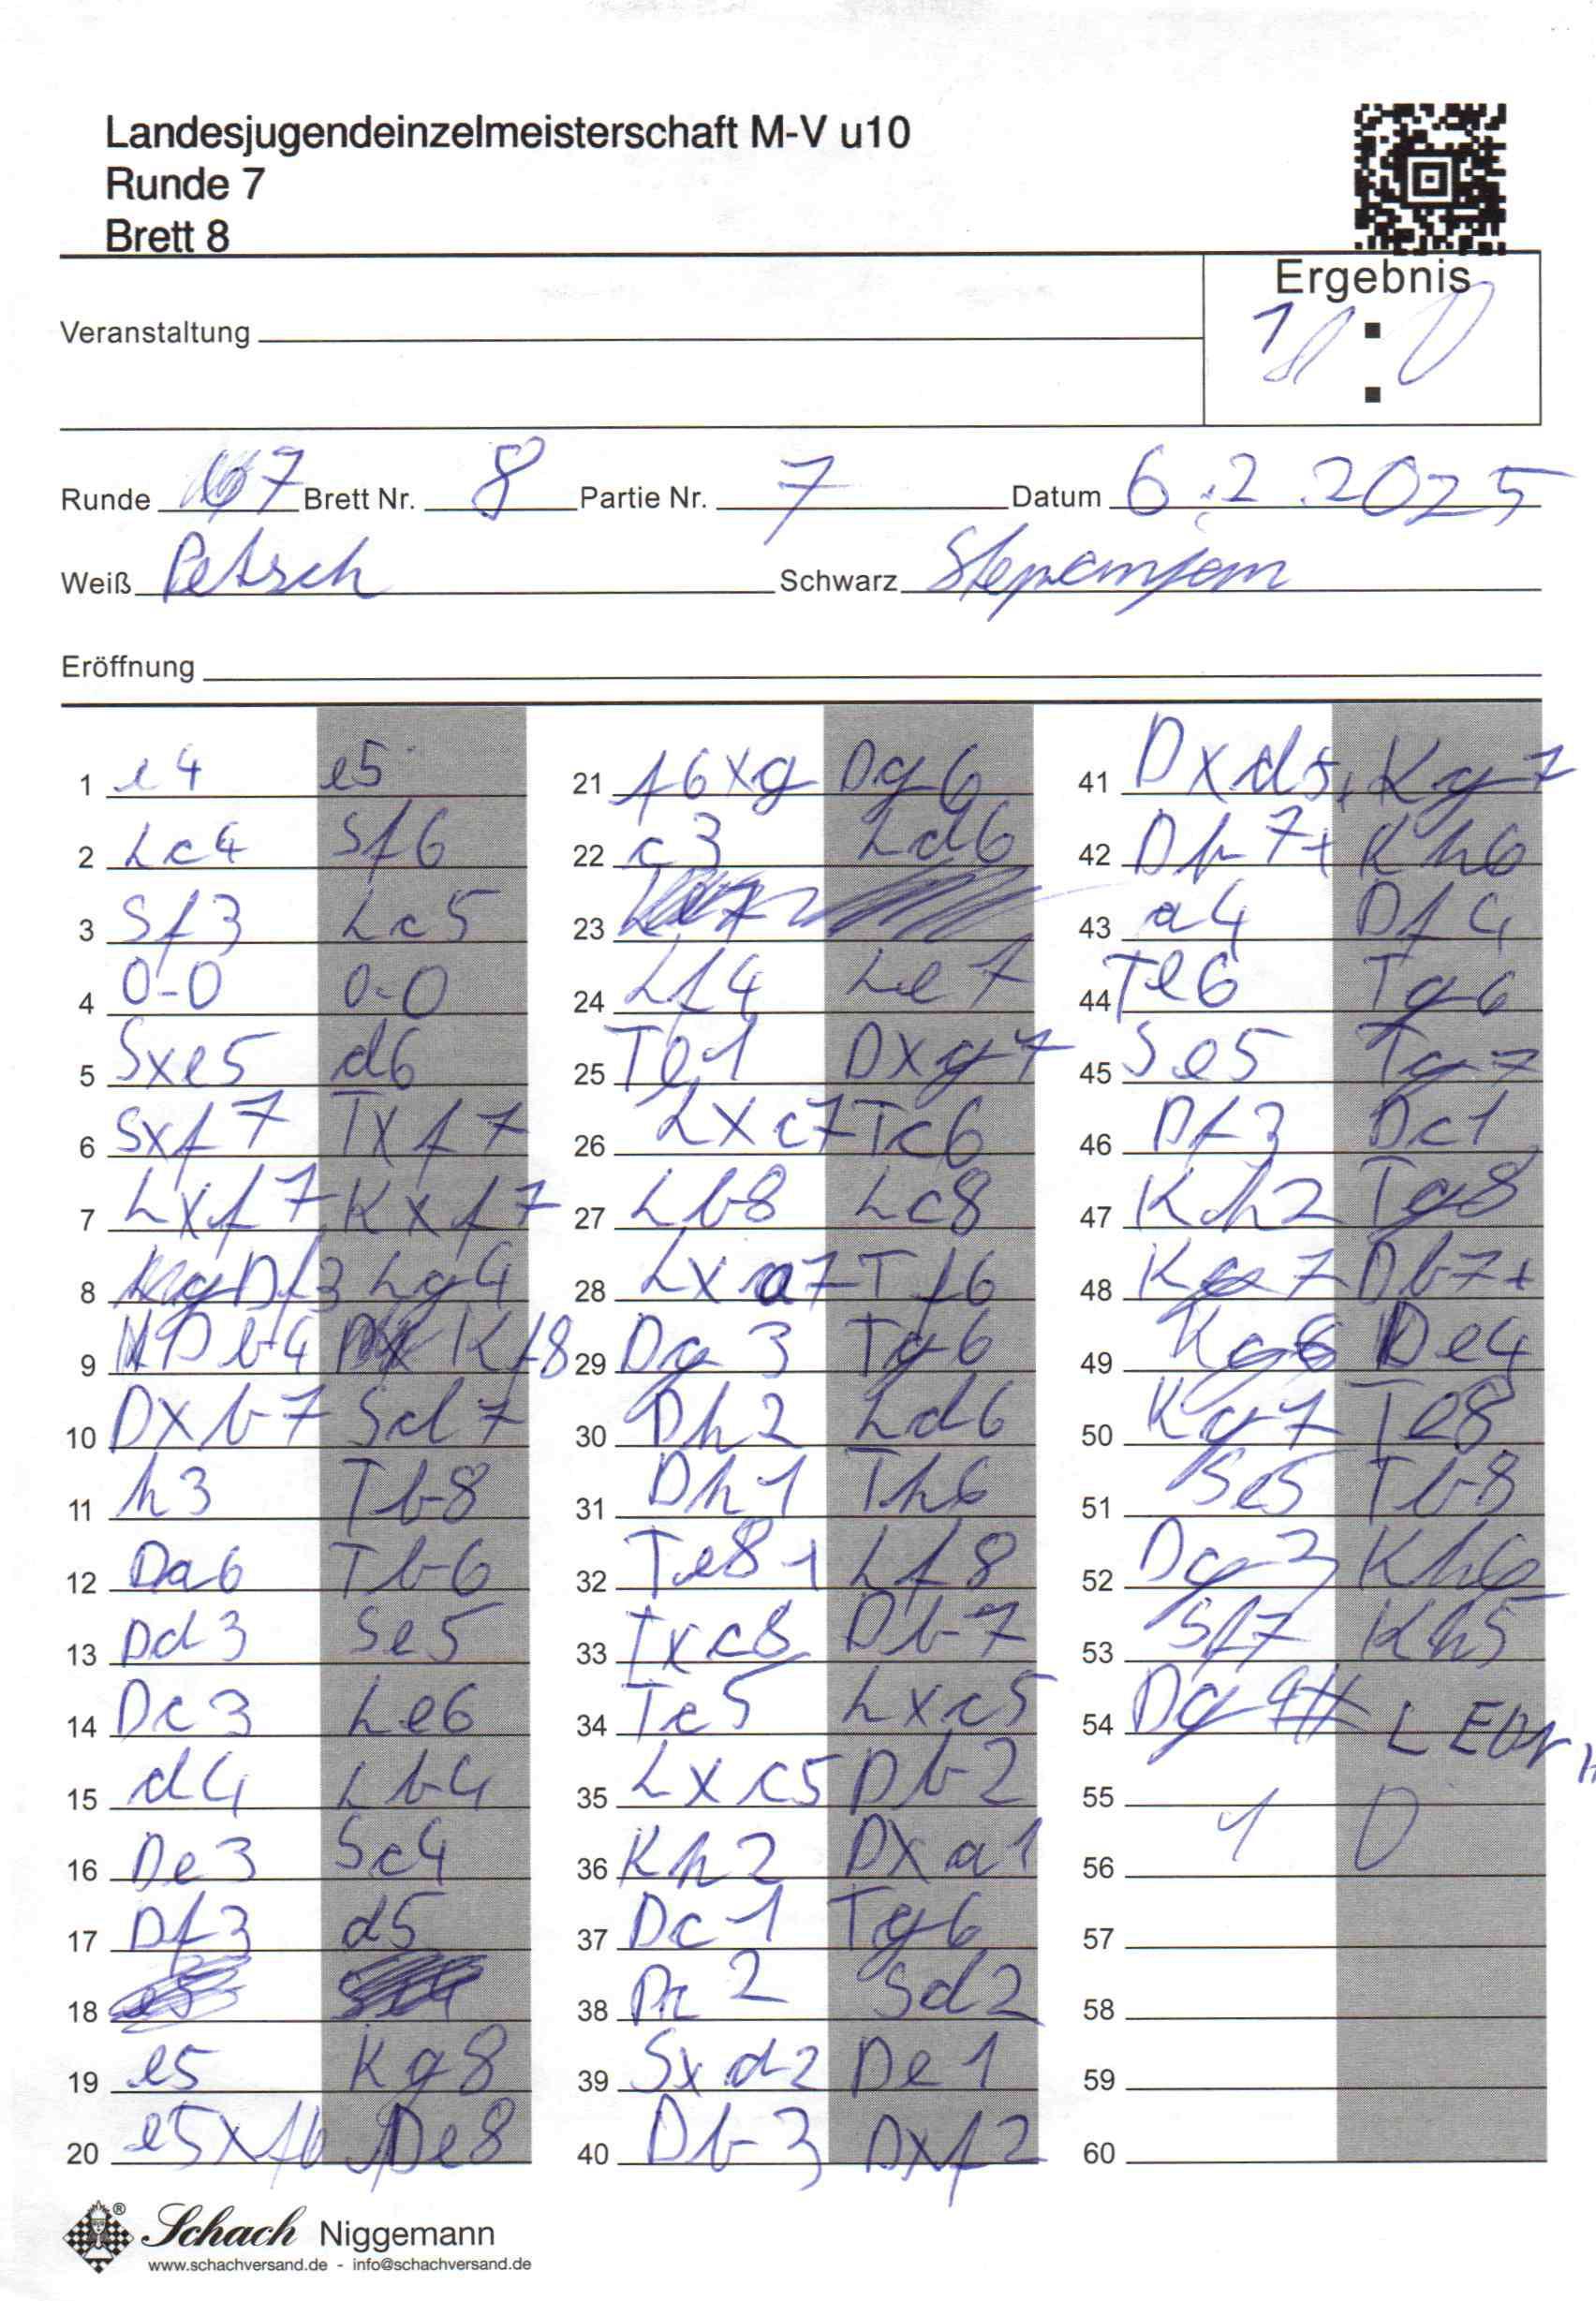 Landesjugendeinzelmeisterschaft M-V u10
Runde 7
Brett 8
Ergebnis
1 : 0
Veranstaltung
Runde 7 Brett Nr. 8 Partie Nr. 7 Datum 6.2.2025
Weiß Petsch Schwarz Stepanjan
Eröffnung
1 e4 e5
2 Lc4 Sf6
3 Sf3 Lc5
4 0-0 0-0
5 Sxe5 d6
6 Sxf7 Txf7
7 Lxf7 Kxf7
8 Df3 Lg4
9 Db4 Kf8
10 Dxb7 Sd7
11 h3 Tb8
12 Da6 Tb6
13 Dd3 Se5
14 Dc3 Le6
15 d4 Lb4
16 De3 Sc4
17 Df3 d5
18
19 e5 Kg8
20 e5xf6 De8
21 f6xg Dg6
22 c3 Ld6
23
24 Lf4 Le7
25 Te1 Dxg7
26 Lxc7 Tc6
27 Lb8 Lc8
28 Lxa7 Tf6
29 Dg3 Tg6
30 Dh2 Ld6
31 Dh1 Th6
32 Te8+ Lf8
33 Txc8 Db7
34 Tc5 Lxc5
35 Lxc5 Db2
36 Kh2 Dxa1
37 Dc1 Tg6
38 Dc2 Sd2
39 Sxd2 De1
40 Db3 Dxf2
41 Dxd5+ Kg7
42 Db7+ Kh6
43 a4 Df4
44 Te6 Tg6
45 Se5 Tg7
46 Df3 Dc1
47 Kh2 Tg8
48 Kg7 Db7+
49 Kg6 De4
50 Kg7 Te8
51 Se5 Tb8
52 Dg3 Kh6
53 Sf7 Kh5
54 Dg4#
55 1 0
56
57
58
59
60
Schach Niggemann
www.schachversand.de - info@schachversand.de